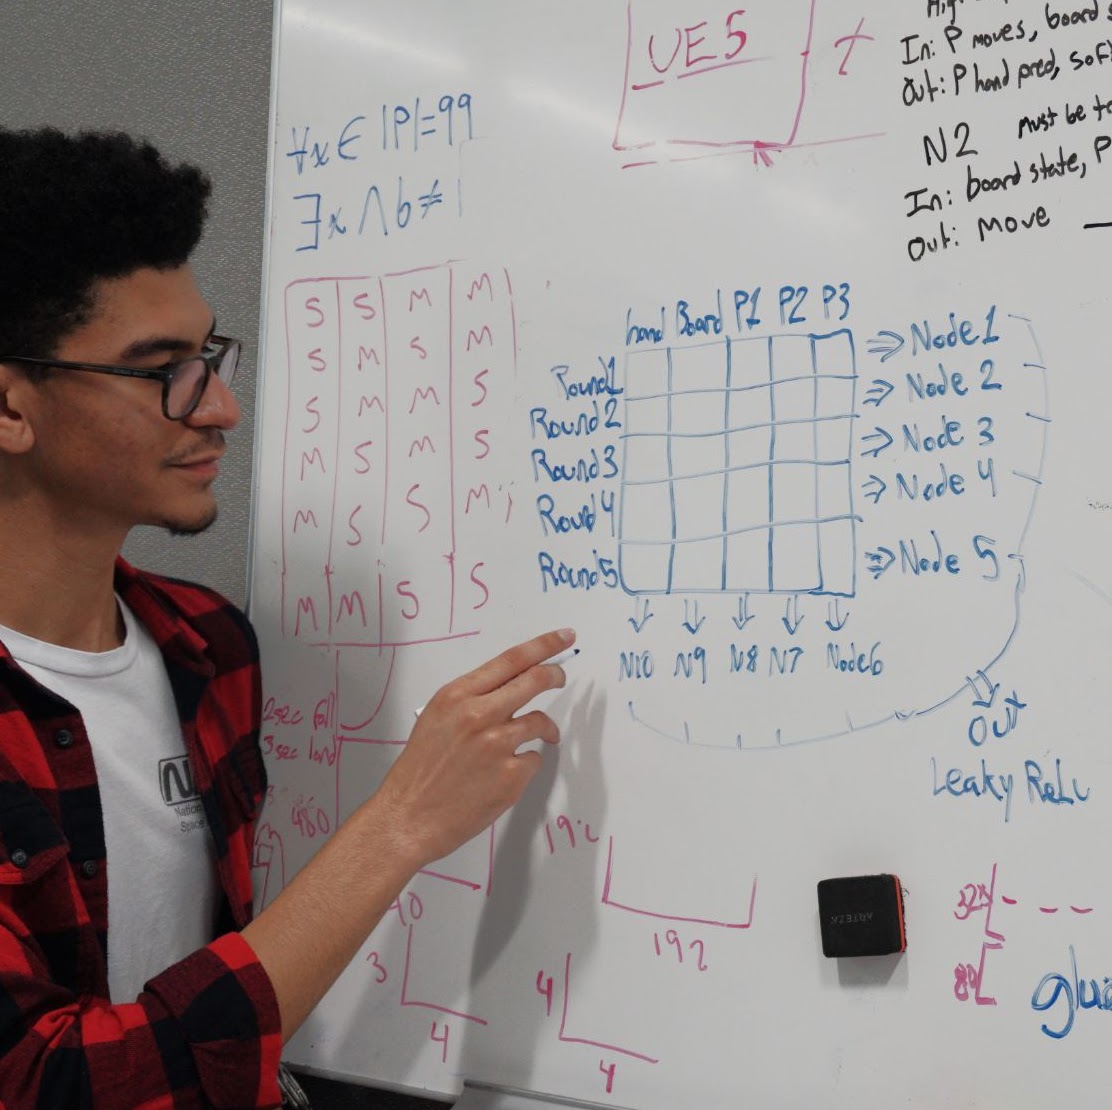 UE5
In: P moves, board
Out: P hand pred,
N2 Must be
In: board state, P
Out: Move
∀x ∈ |P|=99
∃x ∧ b ≠ 1
S S M M
S M S M
S M M S
M S M S
M S S M
M M S S
hand Board P1 P2 P3
Round1 ⇒ Node 1
Round2 ⇒ Node 2
Round3 ⇒ Node 3
Round4 ⇒ Node 4
Round5 ⇒ Node 5
N10 N9 N8 N7 Node6
OUT
Leaky ReLu
2sec fall
3sec land
480
192
3
4
4
4
32
80
ARTEZA